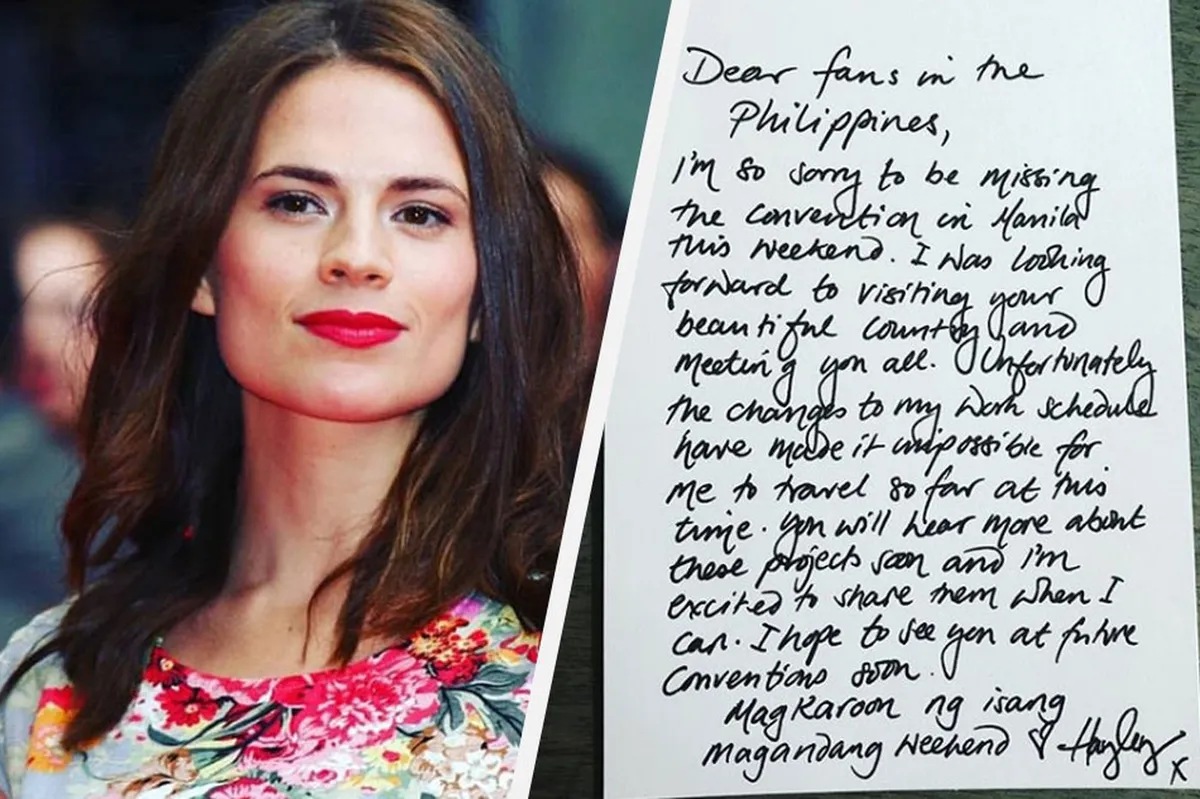 Dear fans in the
Philippines,
I'm so sorry to be missing
the convention in Manila
this weekend. I was looking
forward to visiting your
beautiful country and
meeting you all. Unfortunately
the changes to my work schedule
have made it impossible for
me to travel so far at this
time. You will hear more about
these projects soon and I'm
excited to share them when I
can. I hope to see you at future
conventions soon.
Magkaroon ng isang
magandang weekend ♡ Hayley x